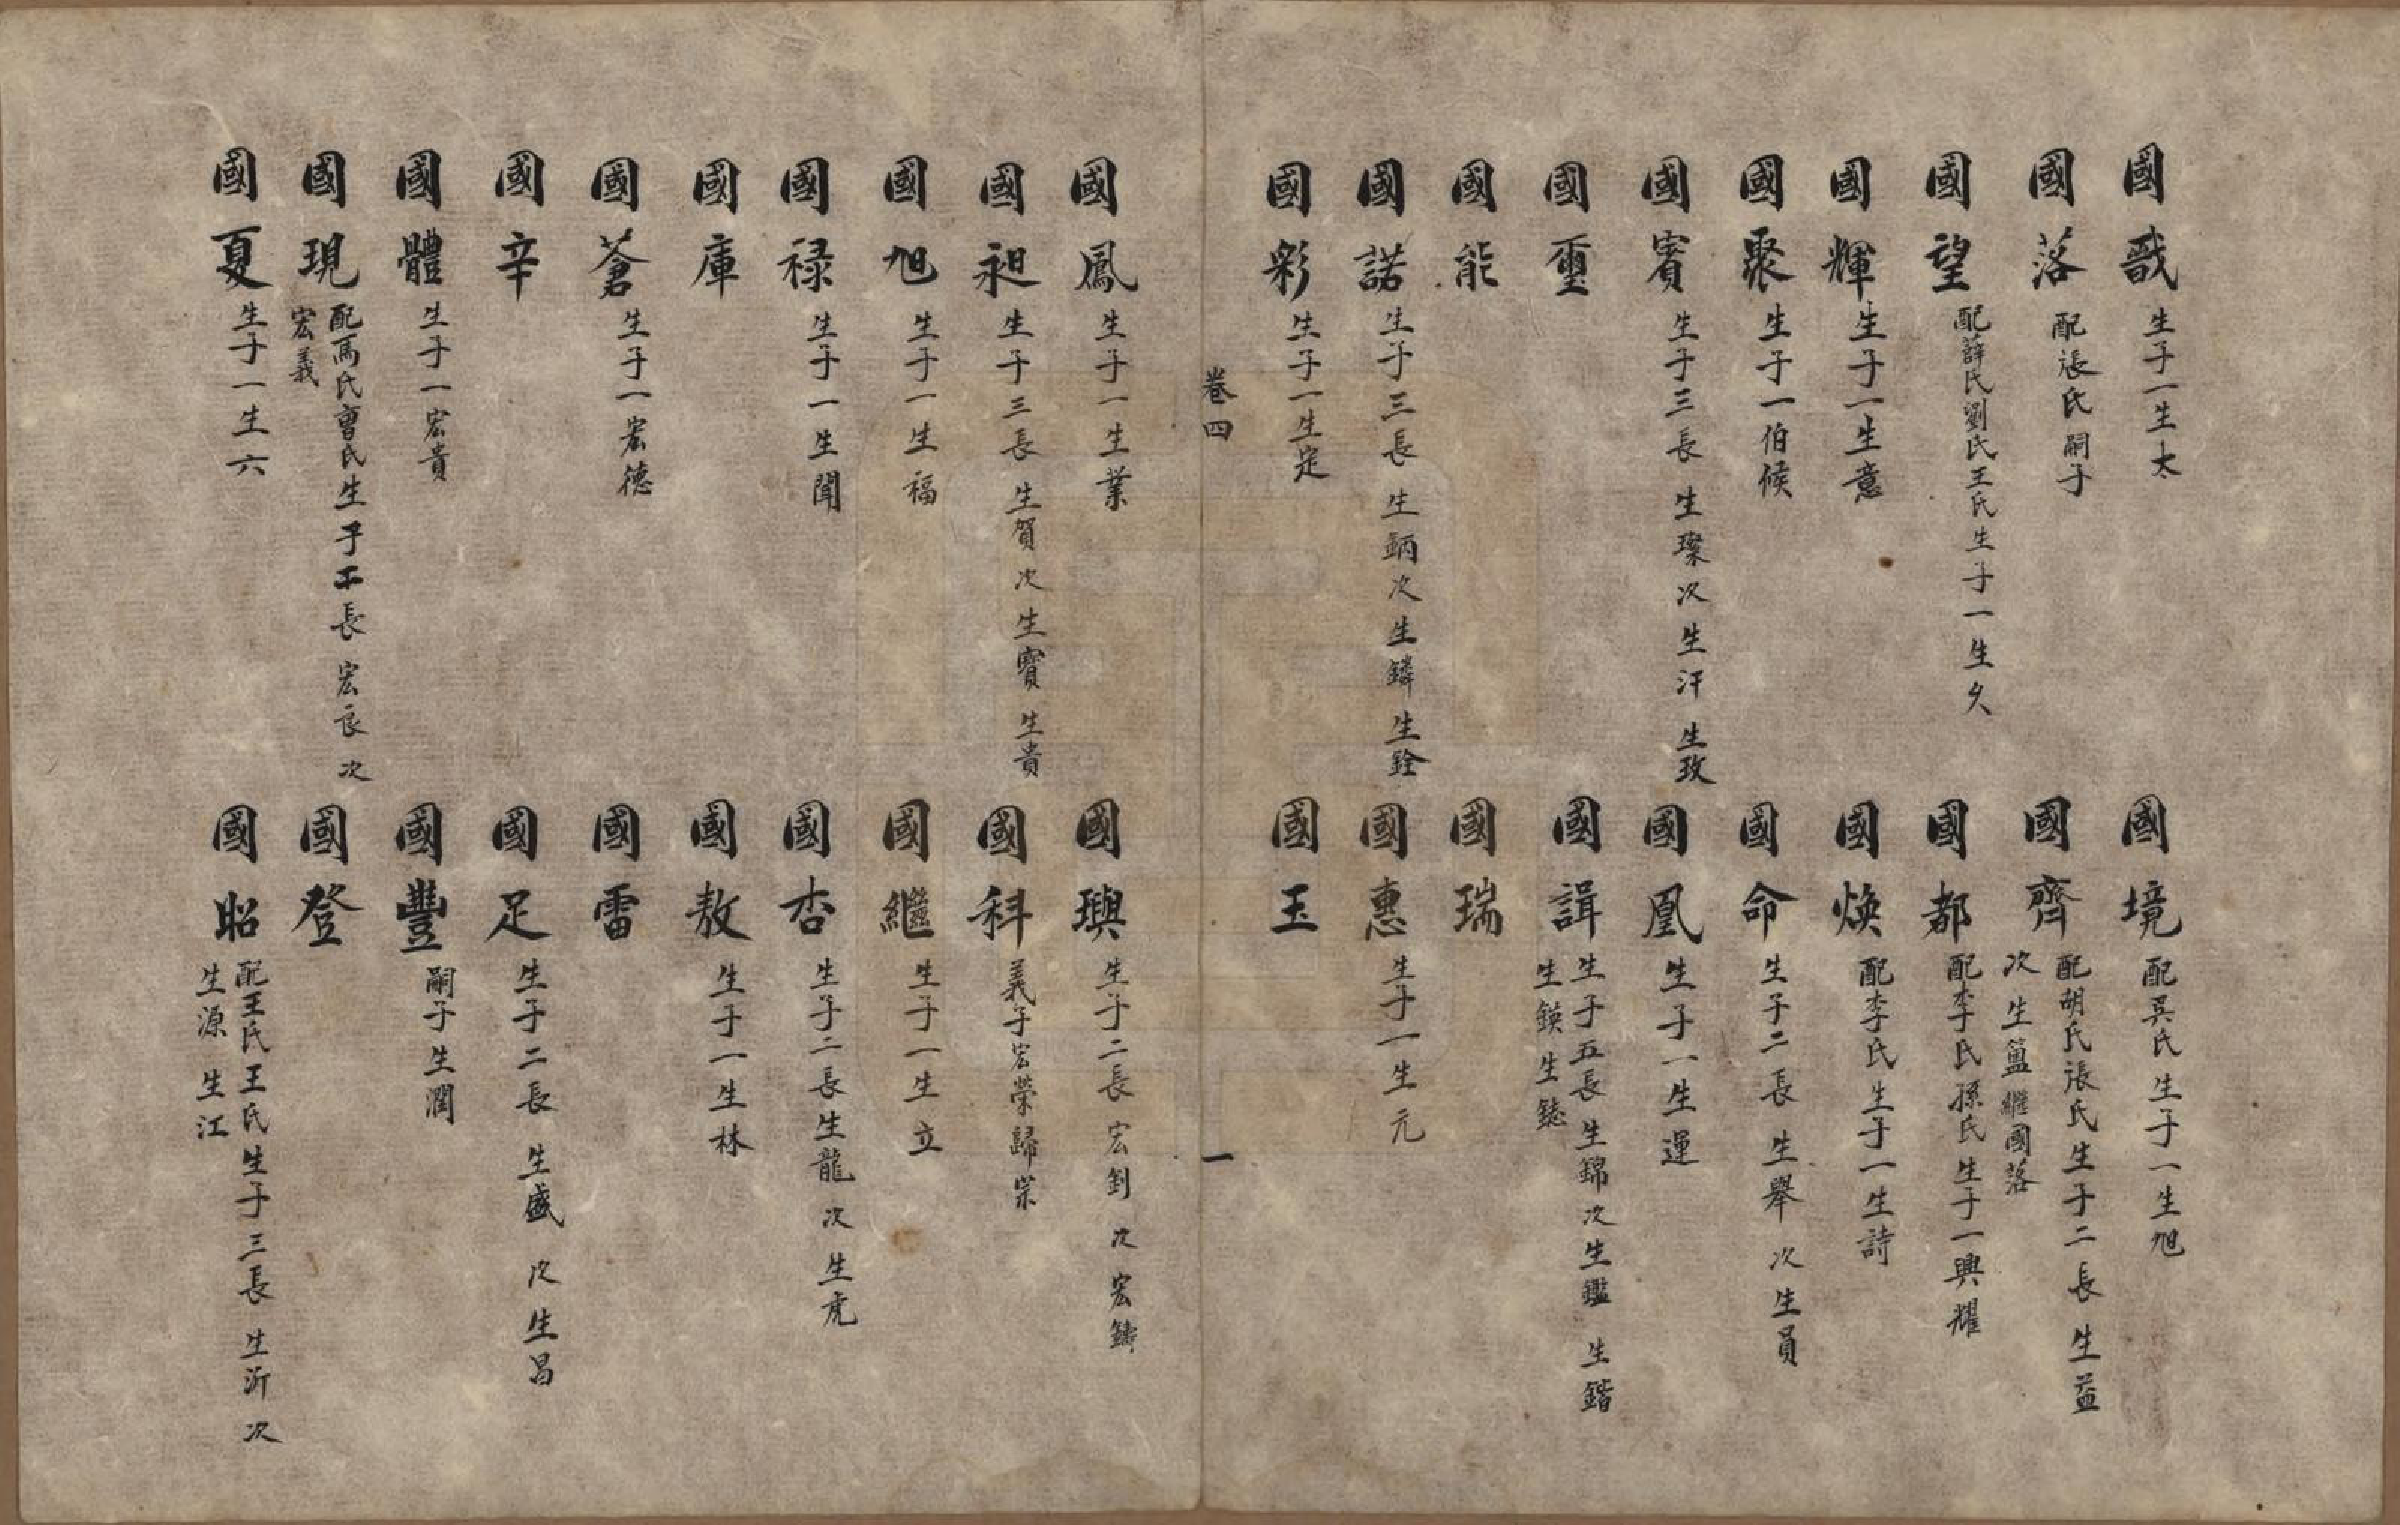 國哉 生子一生太
國落 配張氏嗣子
國望 配薛氏劉氏王氏生子一生久
國輝 生子一生意
國聚 生子一伯候
國賓 生子三長生璨次生汗生玫
國璽
國能
國諾 生子三長生鈵次生鏻生銓
國彩 生子一生定
國境 配吳氏生子一生旭
國齊 配胡氏張氏生子二長生益
次生簠繼國落
國都 配李氏孫氏生子一興耀
國煥 配李氏生子一生詩
國命 生子二長生舉次生員
國凰 生子一生運
國諿 生子五長生錦次生鑑生鍇
生鍈生鋕
國瑞
國惠 生子一生元
國玉
卷四
一
國鳳 生子一生業
國昶 生子三長生賀次生賓生貴
國旭 生子一生福
國禄 生子一生聞
國庫
國蒼 生子一宏德
國辛
國體 生子一宏貴
國現 配馮氏曹氏生子二長宏良次
宏義
國夏 生子一生六
國璵 生子二長宏釗次宏鑄
國科 義子宏榮歸宗
國繼 生子一生立
國杏 生子二長生龍次生虎
國敖 生子一生林
國雷
國足 生子二長生盛次生昌
國豐 嗣子生潤
國登
國昭 配王氏王氏生子三長生沂次
生源生江